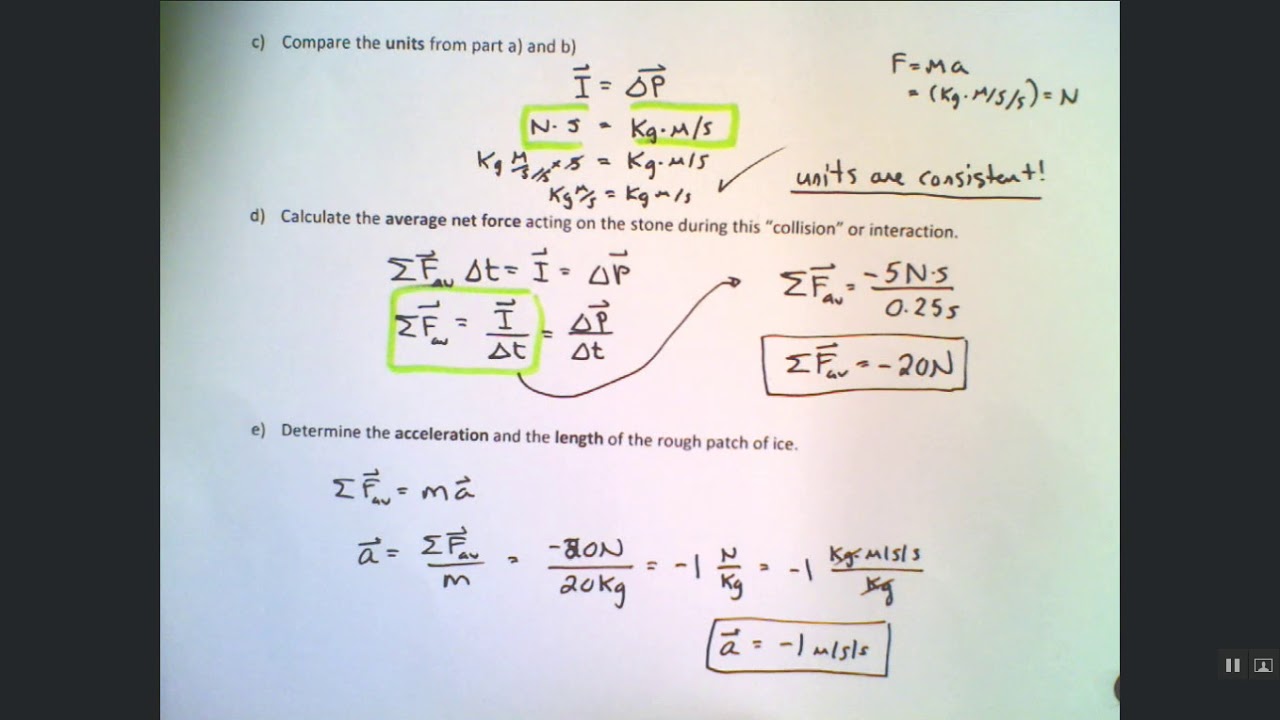 c) Compare the units from part a) and b)
F = Ma
= (Kg·M/S/S) = N
I⃗ = ΔP⃗
N·S = Kg·M/S
Kg M/S/S × S = Kg·M/S
Kg M/S = Kg M/S ✓
units are consistent!
d) Calculate the average net force acting on the stone during this “collision” or interaction.
ΣF⃗av Δt = I⃗ = ΔP⃗
ΣF⃗av = I⃗/Δt = ΔP⃗/Δt
ΣF⃗av = -5N·s/0.25s
ΣF⃗av = -20N
e) Determine the acceleration and the length of the rough patch of ice.
ΣF⃗av = ma⃗
a⃗ = ΣF⃗av/m = -20N/20Kg = -1 N/Kg = -1 Kg·M/s/s/Kg
a⃗ = -1 M/s/s